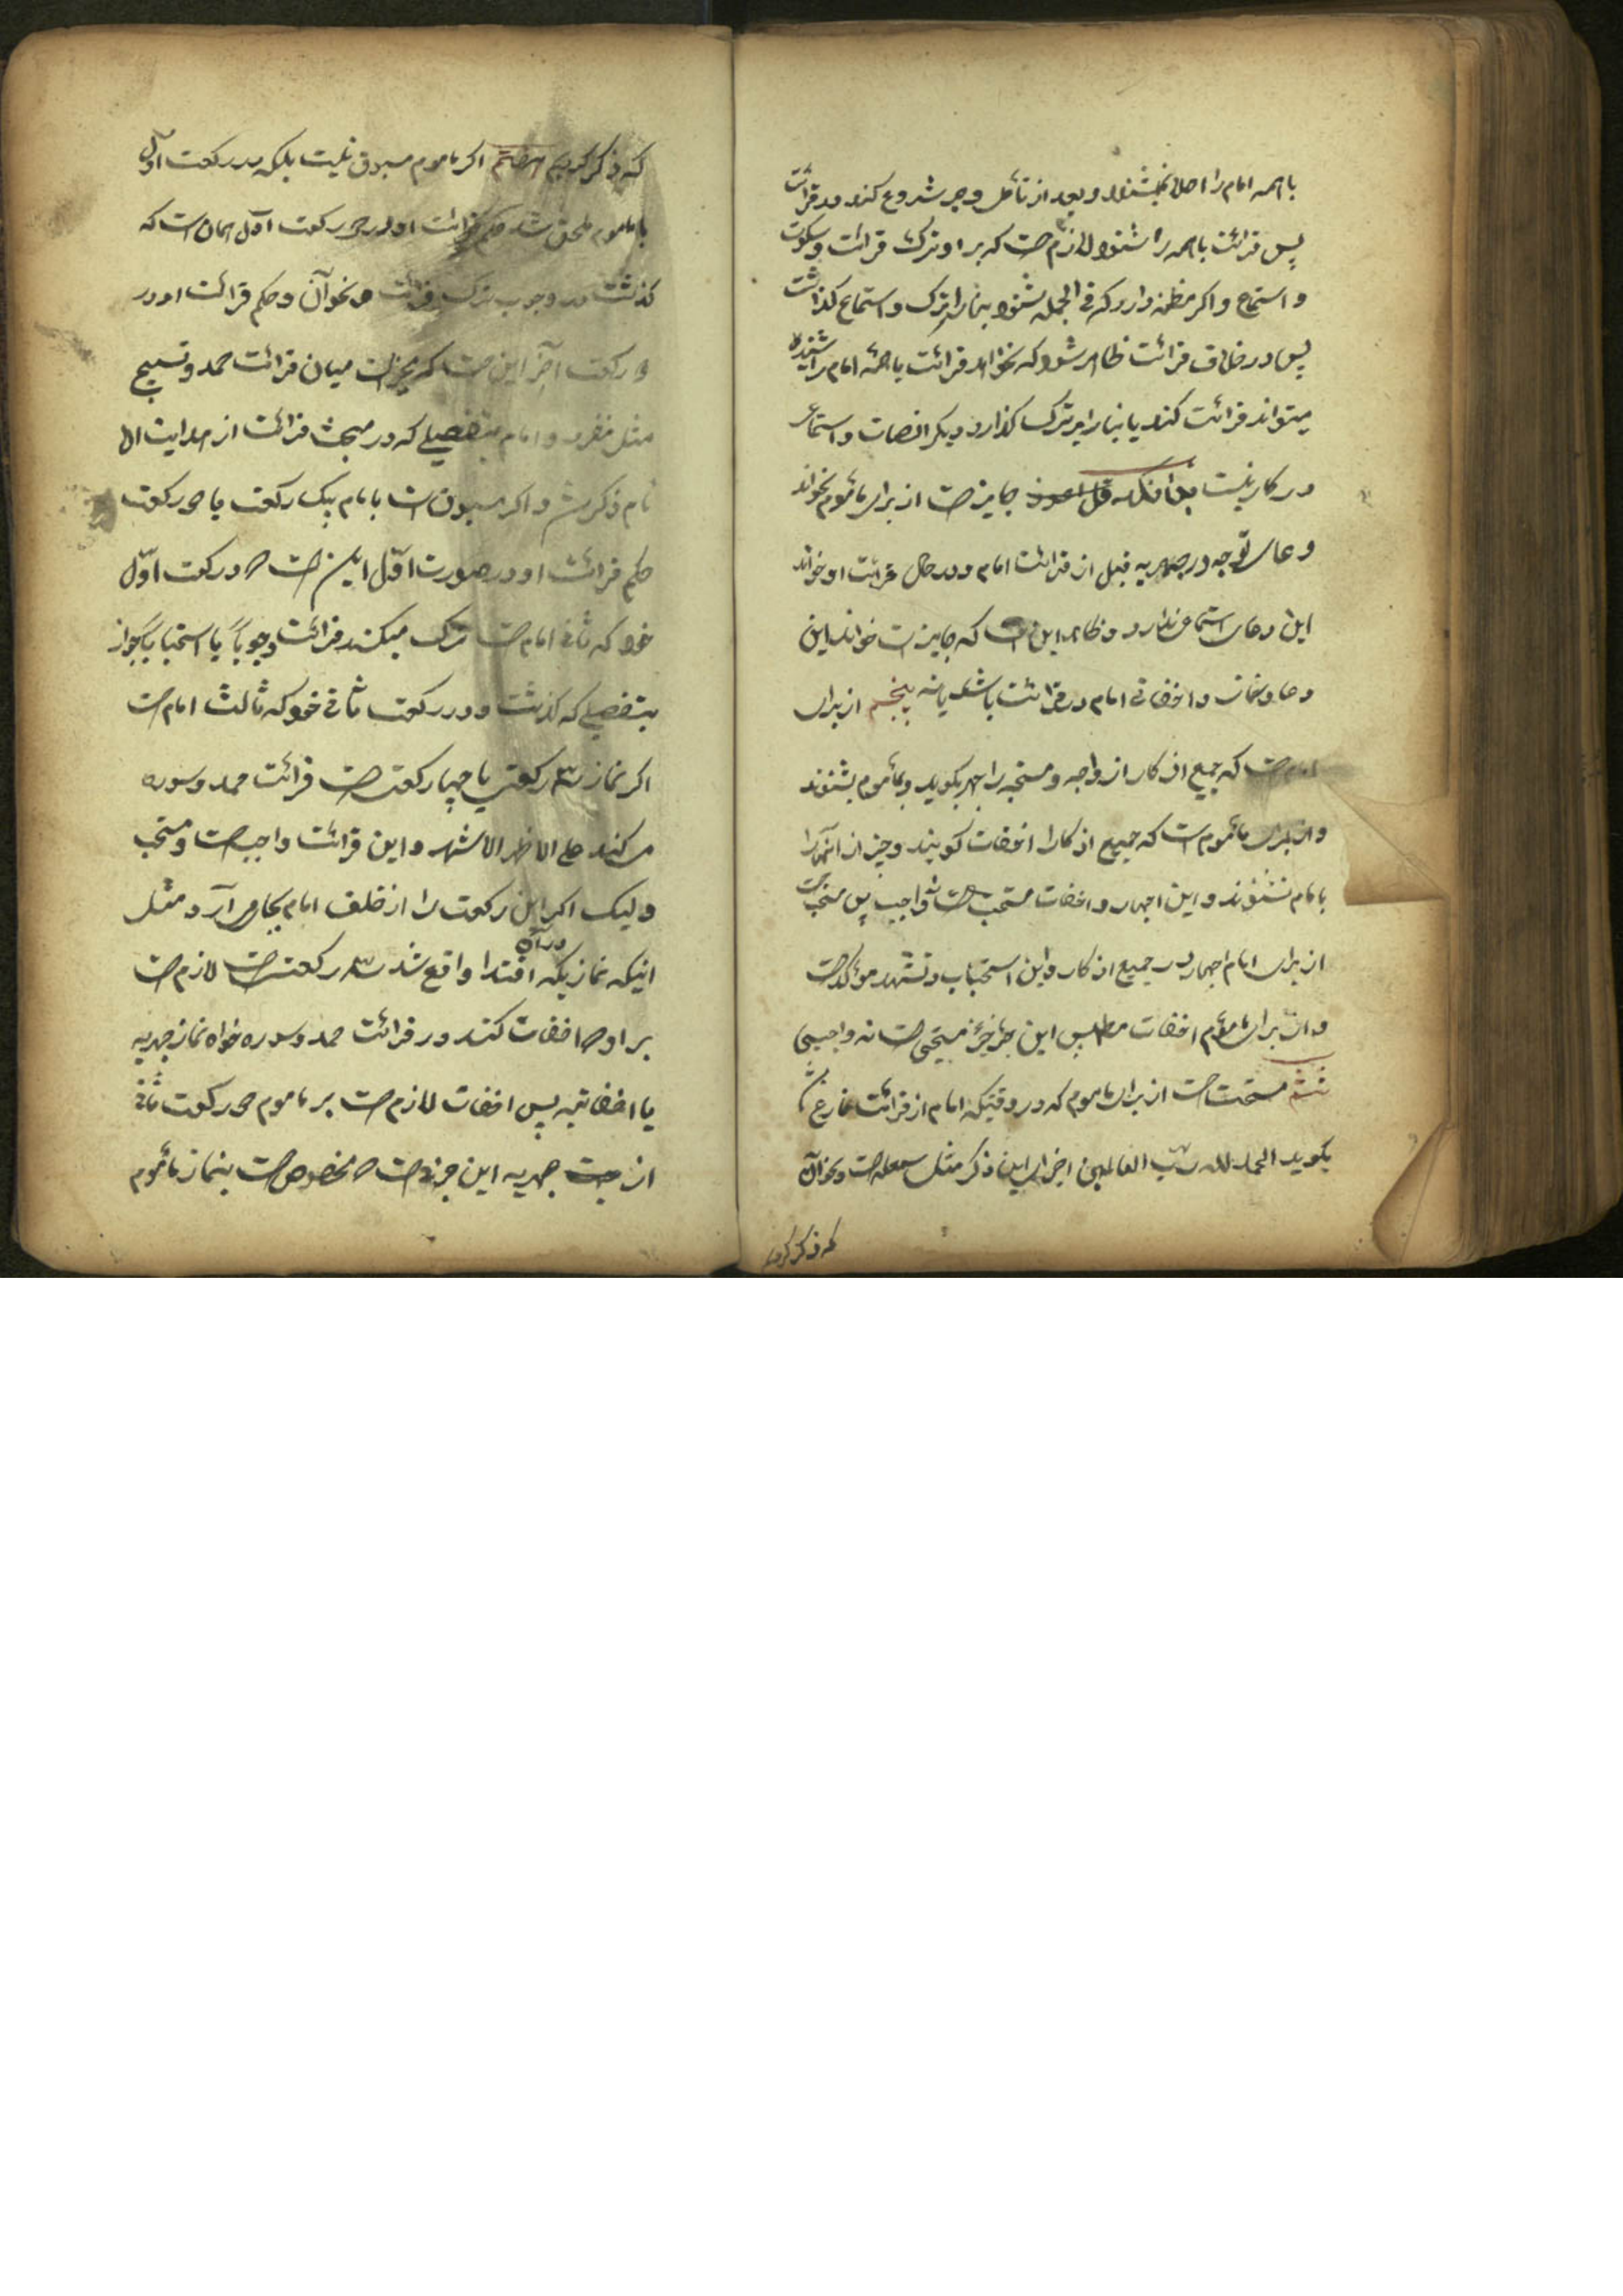 همهمه امام را اصلا نمیشنود و بعد از تأمل و جر شروع کند در قرائت
پس قرائت همهمه را شنود لازم است که بر او ترک قرائت و سکوت
و استماع و اگر مظنه دارد که فی الجمله شنود بنا را بر ترک و استماع گذاشت
پس در خلاف قرائت ظاهر شود که نخواند قرائت یا همهمه امام را شنیده
میتواند قرائت کند یا بنا را بر ترک گذارد دیگر انصات و استماع
در کار نیست جایز است از برای مأموم بخواند
دعای توجه در جهریه قبل از قرائت امام و در حال قرائت او خواند
این دعا استماع ندارد و ظاهر این است که جایز است خواندن این
دعا و نماز و اخفاتی امام در قرائت باشد یا نه پنجم از برای
امام است که جمیع اذکار از واجبه و مستحبه را جهر بگوید و مأموم بشنوند
و از برای مأموم است که جمیع اذکار را اخفات گویند و چیزی از آنها را
بامام نشنوند و این اجهار و اخفات مستحب است نه واجب پس مستحب است
از برای امام اجهار در جمیع اذکار و این استحباب در تشهد مؤکد است
و از برای مأموم اخفات مطلقا پس این جزء جزء مستحبی است نه واجبی
ششم مستحب است از برای ماموم که در وقتیکه امام از قرائت فارغ شد
بگوید الحمد لله رب العالمین اجزای این ذکر مثل بسمله است و نحو آن
که ذکر کردیم
که ذکر کردیم هفتم اگر ماموم مسبوق نیست بلکه در رکعت اول
با ماموم ملحق شد حکم قرائت او در دو رکعت اول همان است که
گذشت در وجوب ترک قرائت و نحو آن و حکم قرائت او در
دو رکعت آخر این است که مخیر است میان قرائت حمد و تسبیح
مثل منفرد و امام بتفصیلی که در مبحث قرائت از هدایت الا
نام ذکر شد و اگر مسبوق است بامام بیک رکعت یا دو رکعت
حکم قرائت او در صورت اول این است که در رکعت اول
خود که ثانی امام است ترک میکند قرائت وجوباً یا استحباباً یا جواز
بتفصیلی که گذشت و در رکعت ثانی خود که ثالث امام است
اگر نماز سه رکعتی یا چهار رکعت است قرائت حمد و سوره
میکند علی الاظهر الاشهر و این قرائت واجب است و مستحب
ولیک اگر این رکعت را از خلف امام بجا می آرد مثل
اینکه نمازیکه در آن اقتدا واقع شد سه رکعت است لازم است
بر او که اخفات کند در قرائت حمد و سوره خواه نماز جهریه
یا اخفاتیه پس اخفات لازم است بر ماموم در رکعت ثانی
از جهت جهریه این جزئی است که مخصوص است بنماز مأموم